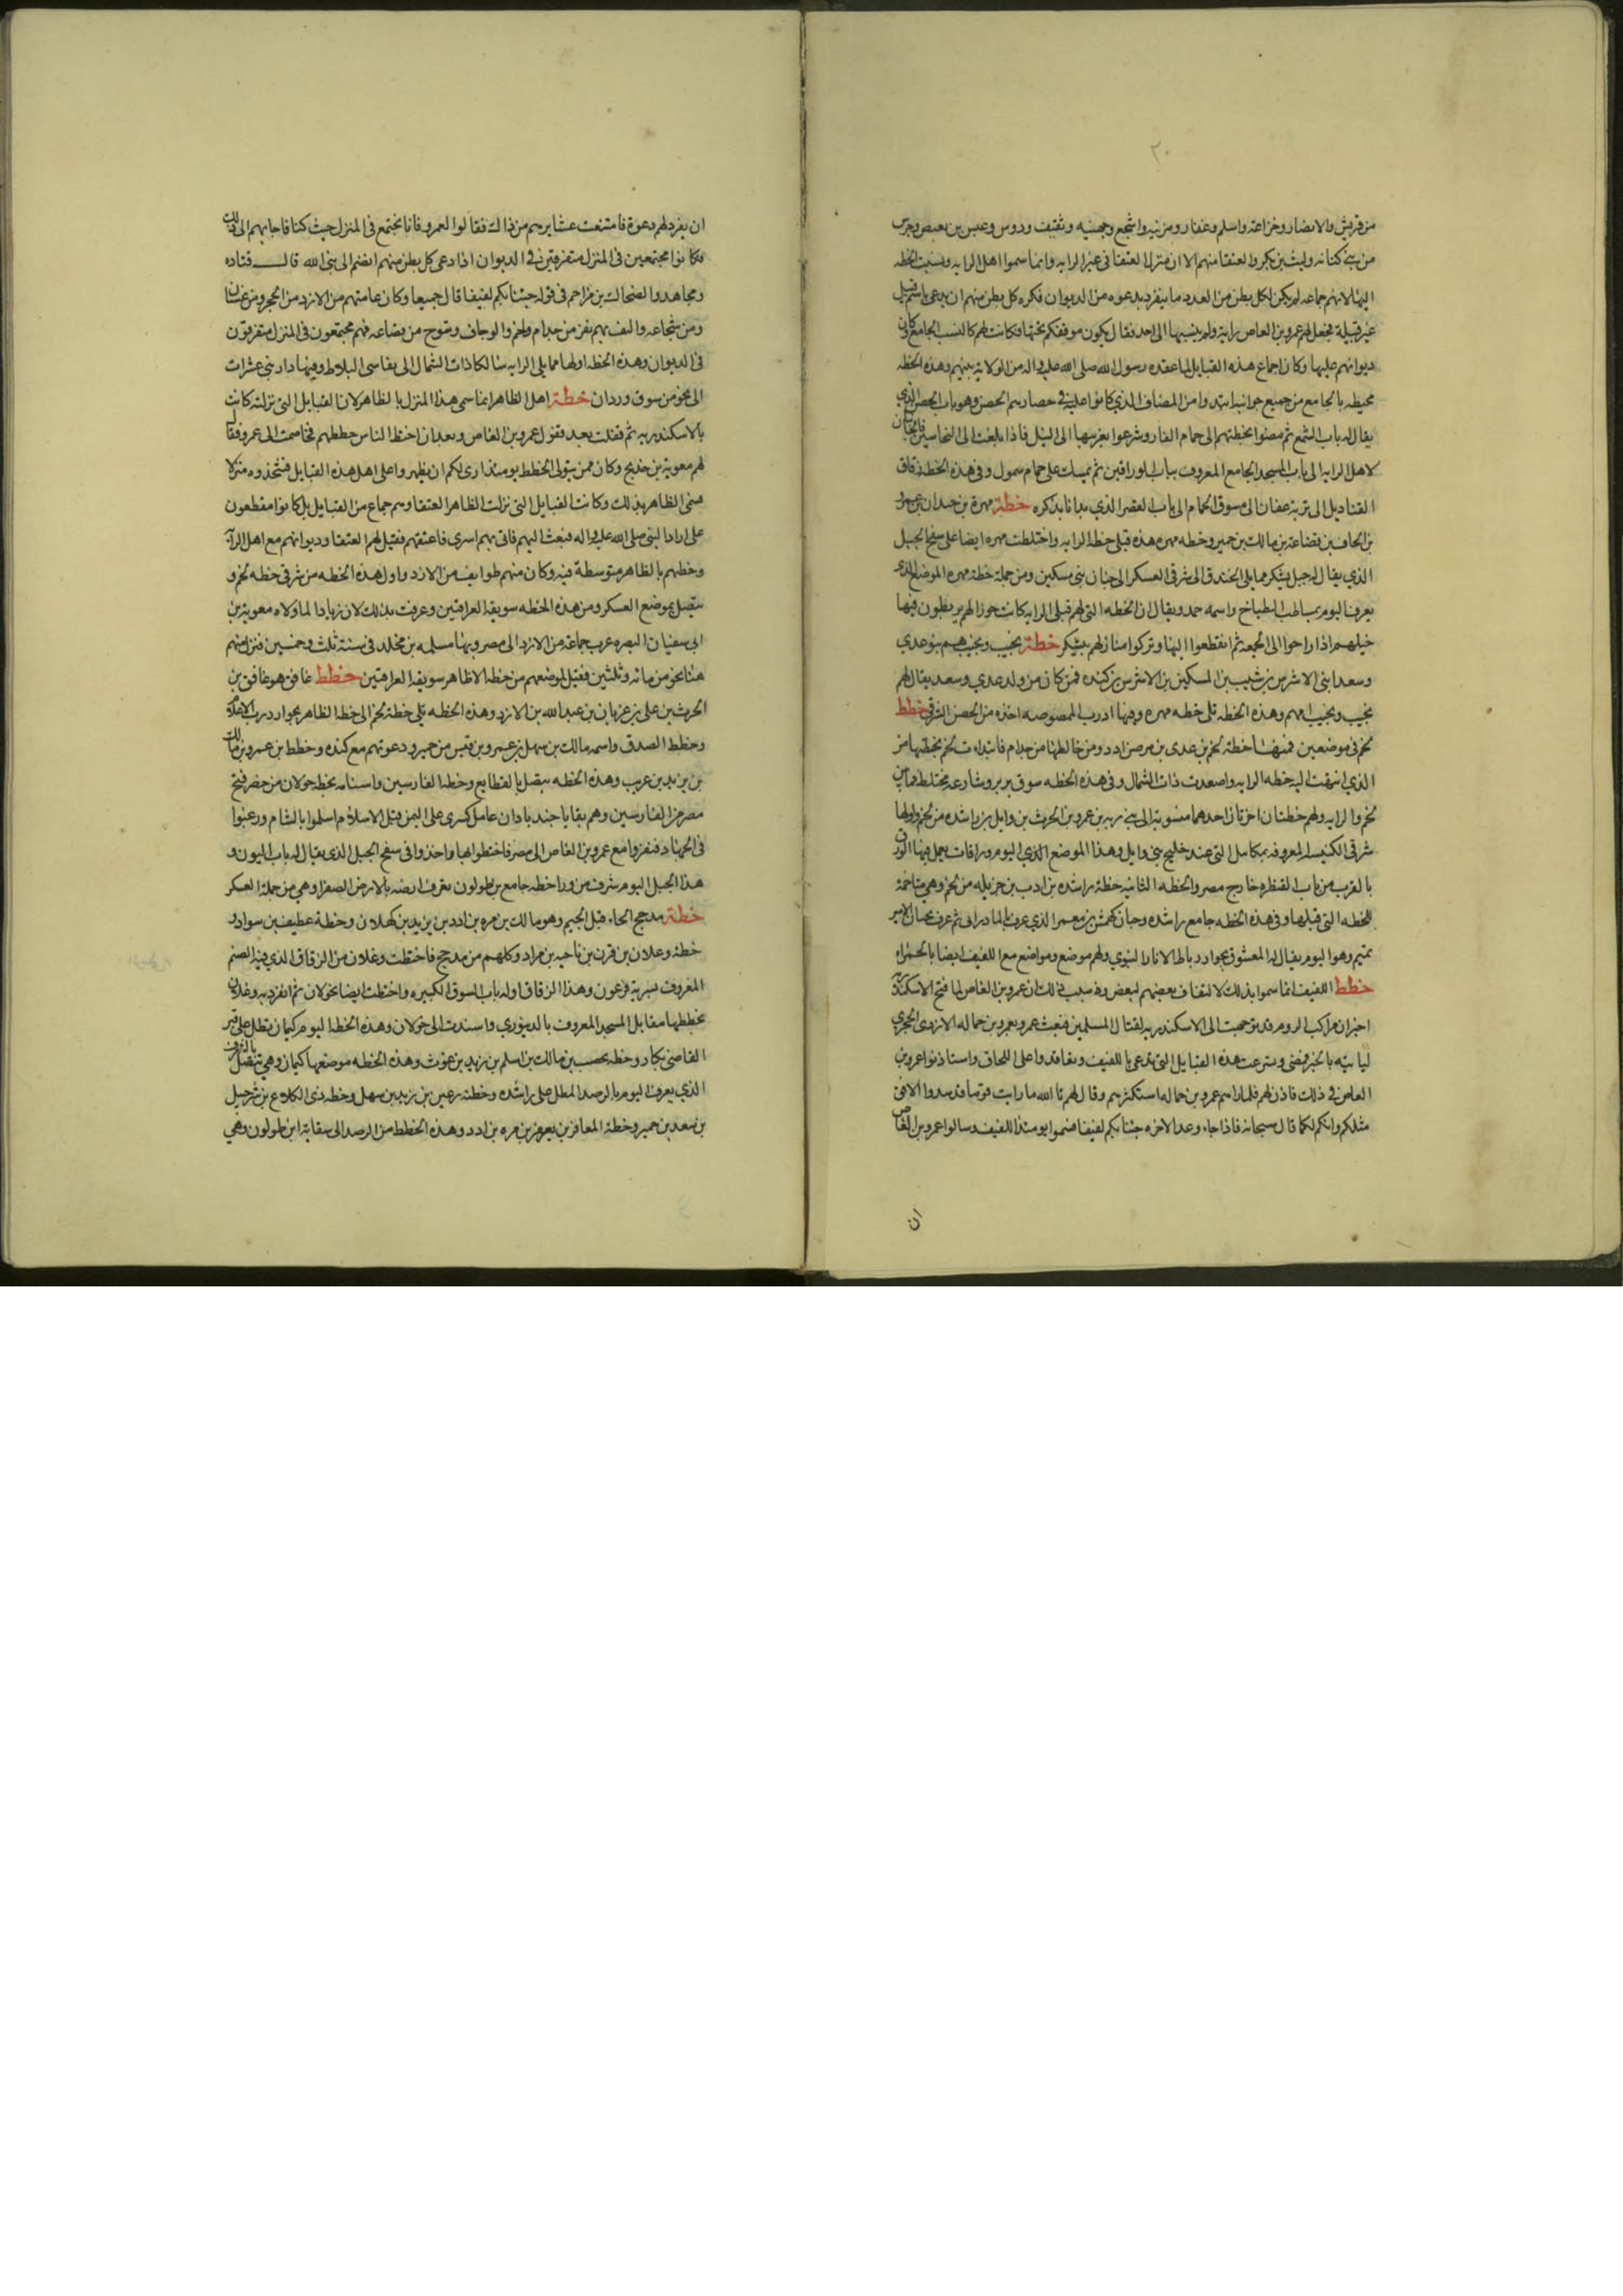 ٢٠
من قريش والانصار وخزاعة واسلم وغفار ومزينه واشجع وجهينه وثقيف ودوس وعبس بن بغيض وجرش
من بني كنانه وليث بن بكر والعتقا منهم الا ان منزل العتقا في غير الرايه وانما سموا اهل الرايه ونسبت الخطه
اليها لانهم جماعه لم يكن لكل بطن من العدد ما ينفرد بدعوه من الديوان فكره كل بطن منهم ان يدعى باسم قبيل
غير قبيلة فجعل لهم عمرو بن العاص راية ولم ينسبها الى احد فقال يكون موقفكم تحتها فكانت لهم كالنسب الجامع وكان
ديوانهم عليها وكان اجماع هذه القبايل لما عقده رسول الله صلى الله عليه واله من الولاية بينهم وهذه الخطه
محيطه بالجامع من جميع جوانبه ابتدوا من المصاف الذي كانوا عليه في حصارهم الحصن وهو باب الحصن الذي
يقال له باب الشمع ثم مضوا بخطتهم الى حمام الفار وشرعوا بغربيها الى النيل فاذا بلغت الى النحاسين فالجانبان
لاهل الرايه الى باب المسجد الجامع المعروف بباب الوراقين ثم يسلك على حمام شمول وفي هذه الخطة زقاق
القناديل الى تربة عفان الى سوق الحمام الى باب القصر الذي بدانا بذكره خطة مهرة بن حيدان بن عمرو
بن الحاف بن قضاعة بن مالك بن حمير وخطه مهره هذه قبلي خطة الرايه واختلطت مهره ايضا على سفح الجبل
الذي يقال له جبل يشكر مما يلي الخندق الى شرقي العسكر الى جنان بني مسكين ومن جملة خطة مهره الموضع الذي
يعرف اليوم بمساطب الطباخ واسمه حمد ويقال ان الخطه التي لهم قبلي الرايه كانت حوزا لهم يربطون فيها
خيلهم اذا راحوا الى الجمعه ثم انقطعوا اليها وتركوا منازلهم بيشكر خطة تجيب وتجيب هم بنو عدي
وسعد ابني الاشرس بن شبيب بن السكين بن الاشرس بن كنده فمن كان من ولد عدي وسعد يقال لهم
تجيب وتجيب امهم وهذه الخطه تلي خطه مهره وفيها درب الممصوصه اخذه من الحصن الشرقي خطط
لخم في موضعين فمنها خطة لخم بن عدي بن مره بن ادد ومن خالطها من جذام فابتدات لخم بخطتها من
الذي انتهت اليه خطه الرايه واصعدت ذات الشمال وفي هذه الخطه سوق بربر وشارعه مختلط فيما بين
لخم والرايه ولهم خطتان اخرتان احدهما منسوبة الى بني ريه بن عمرو بن الحرث بن وايل بن راشده من لخم واولها
شرقي الكنيسه المعروفه بميكاييل التي عند خليج بني وايل وهذا الموضع الذي اليوم وراقات يعمل فيها الورق
بالقرب من باب القنطره خارج مصر والخطه الثانيه خطة راشده بن ادب بن جزيله من لخم وهي متاخمة
للخطه التي قبلها وفي هذه الخطه جامع راشده وجنان كهمش بن معمر الذي عرف بالمادراني ثم عرف بجنان الامير
تميم وهو اليوم يقال له المعشوق بجوار رباط الاثار النبوي ولهم موضع ومواضع مع اللفيف ايضا بالحمراه
خطط اللفيف انما سموا بذلك لالتفاف بعضهم لبعض وسبب ذلك ان عمرو بن العاص لما فتح الاسكندريه
اخبر ان مراكب الروم قد توجهت الى الاسكندريه لقتال المسلمين فبعث عمرو بعمرو بن حماله الازدي الحجري
لياتيه بالخبر فمضى وسرعت هذه القبايل التي تدعى باللفيف وتعاقدوا على اللحاق واستاذنوا عمرو بن
العاص في ذلك فاذن لهم فلما راهم عمرو بن حماله استكثرهم وقال لهم تا الله ما رايت قوما قد سدوا الافق
مثلكم وانكم لكما قال سبحانه فاذا جاء وعد الاخره جئنا بكم لفيفا فسموا يومئذ اللفيف وسالوا عمرو بن العاص
ان
ان يفرد لهم دعوة فامتنعت عشايرهم من ذالك فقالوا لعمرو فانا نجتمع في المنزل حيث كنا فاجابهم الى ذلك
فكانوا مجتمعين في المنزل متفرقين في الديوان اذا دعي كل بطن منهم انضم الى بني الله قال قتاده
ومجاهد والضحاك بن مزاحم في قوله جئنا بكم لفيفا قال جميعا وكان عامتهم من الازد من الحجر ومن غسان
ومن شجاعه والتف بهم نفر من جذام ولخم والوحاف وتنوخ من قضاعه فهم مجتمعون في المنزل متفرقون
في الديوان وهذه الخطه اولها مما يلي الرايه سالكا ذات الشمال الى نقاسي البلاط وفيها دار بني عشرات
الى نحو من سوق وردان خطة اهل الظاهر انما سمي هذا المنزل بالظاهر لان القبايل التي نزلته كانت
بالاسكندريه ثم قفلت بعد قفول عمرو بن العاص وبعد ان اختط الناس خططهم فخاصمت الى عمرو فقال
لهم معوية بن خديج وكان ممن يتولى الخطط يومئذ ارى لكم ان يظهروا على اهل هذه القبايل فتتخذوه منزلا
فسمي الظاهر بذلك وكانت القبايل التي نزلت الظاهر العتقا وهم جماع من القبايل بل كانوا يقطعون
على اراد النبي صلى الله عليه واله فبعث اليهم فاتى بهم اسرى فاعتقهم فقيل لهم العتقا وديوانهم مع اهل الرايه
وخطهم بالظاهر متوسطة فيه وكان منهم طوايف من الازد واول هذه الخطه من شرقي خطه لخم و
يتصل بموضع العسكر ومن هذه الخطه سويقه العراقيين وعرفت بذلك لان زيادا لما ولاه معوية بن
ابي سفيان البصره غرب جماعة من الازد الى مصر وبها مسلمه بن مخلد في سنة ثلث وخمسين فنزل منهم
هنا نحو من مائه وثلثين فقيل لموضعهم من خطه الظاهر سويقه العراقيين خطط غافق هو غافق بن
الحرث بن علي بن عزنان بن عبد الله بن الازد وهذه الخطه تلي خطة لخم الى خطه الظاهر بجوار درب الاعلام
وخطط الصدف واسمه مالك بن سهل بن عمرو بن قيس من حمير ودعوتهم مع كنده وخطط بن عمرو بن مالك
بن يزيد بن عريب وهذه الخطه يتصل بالقطايع وخطه الفارسيين واستامه بخط خولان من حضر فتح
مصر من الفارسيين وهم بقايا جند باذان عامل كسرى على اليمن قبل الاسلام اسلموا بالشام ورغبوا
في الجهاد فنفروا مع عمرو بن العاص الى مصر فاختطوا بها واخذوا في سفح الجبل الذي يقال له باب اليون و
هذا الجبل اليوم شرف من ورا خطه جامع بن طولون تعرف ارضه بالارض الصفرا وهي من جملة العسكر
خطة مذحج الحاء قبل الجيم وهو مالك بن مره بن ادد بن يزيد بن كهلان وخطة عطيف بن سواد و
خطة وعلان بن قرن بن ناجيه بن مراد وكلهم من مذحج فاختطت وعلان من الزقاق الذي فيه الصنم
المعروف بسريه فرعون وهذا الزقاق اوله باب السوق الكبيره واختطت ايضا بخولان ثم انفرد به وعلان
بخططها مقابل المسجد المعروف بالدينوري واسندت الى خولان وهذه الخطه اليوم كيمان تطل على قبر
القاضي بكار وخطه يحصب بن مالك بن اسلم بن زيد بن غوث وهذه الخطه موضعها كيمان وهي تتصل بالشرف
الذي يعرف اليوم بالرصد المطل على راشده وخطة رعين بن زيد بن سهل وخطه ذي الكلاع بن شرحبيل
بن سعد بن حمير وخطة المعافر بن يعفر بن مره بن ادد وهذه الخطط من الرصد الى سقاية ابن طولون وهي